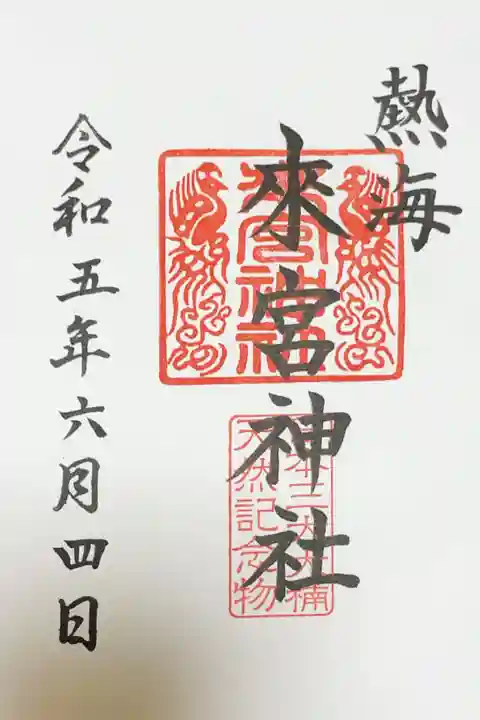 熱海
來宮神社
來宮神社
日本三大大楠
天然記念物
令和五年六月四日